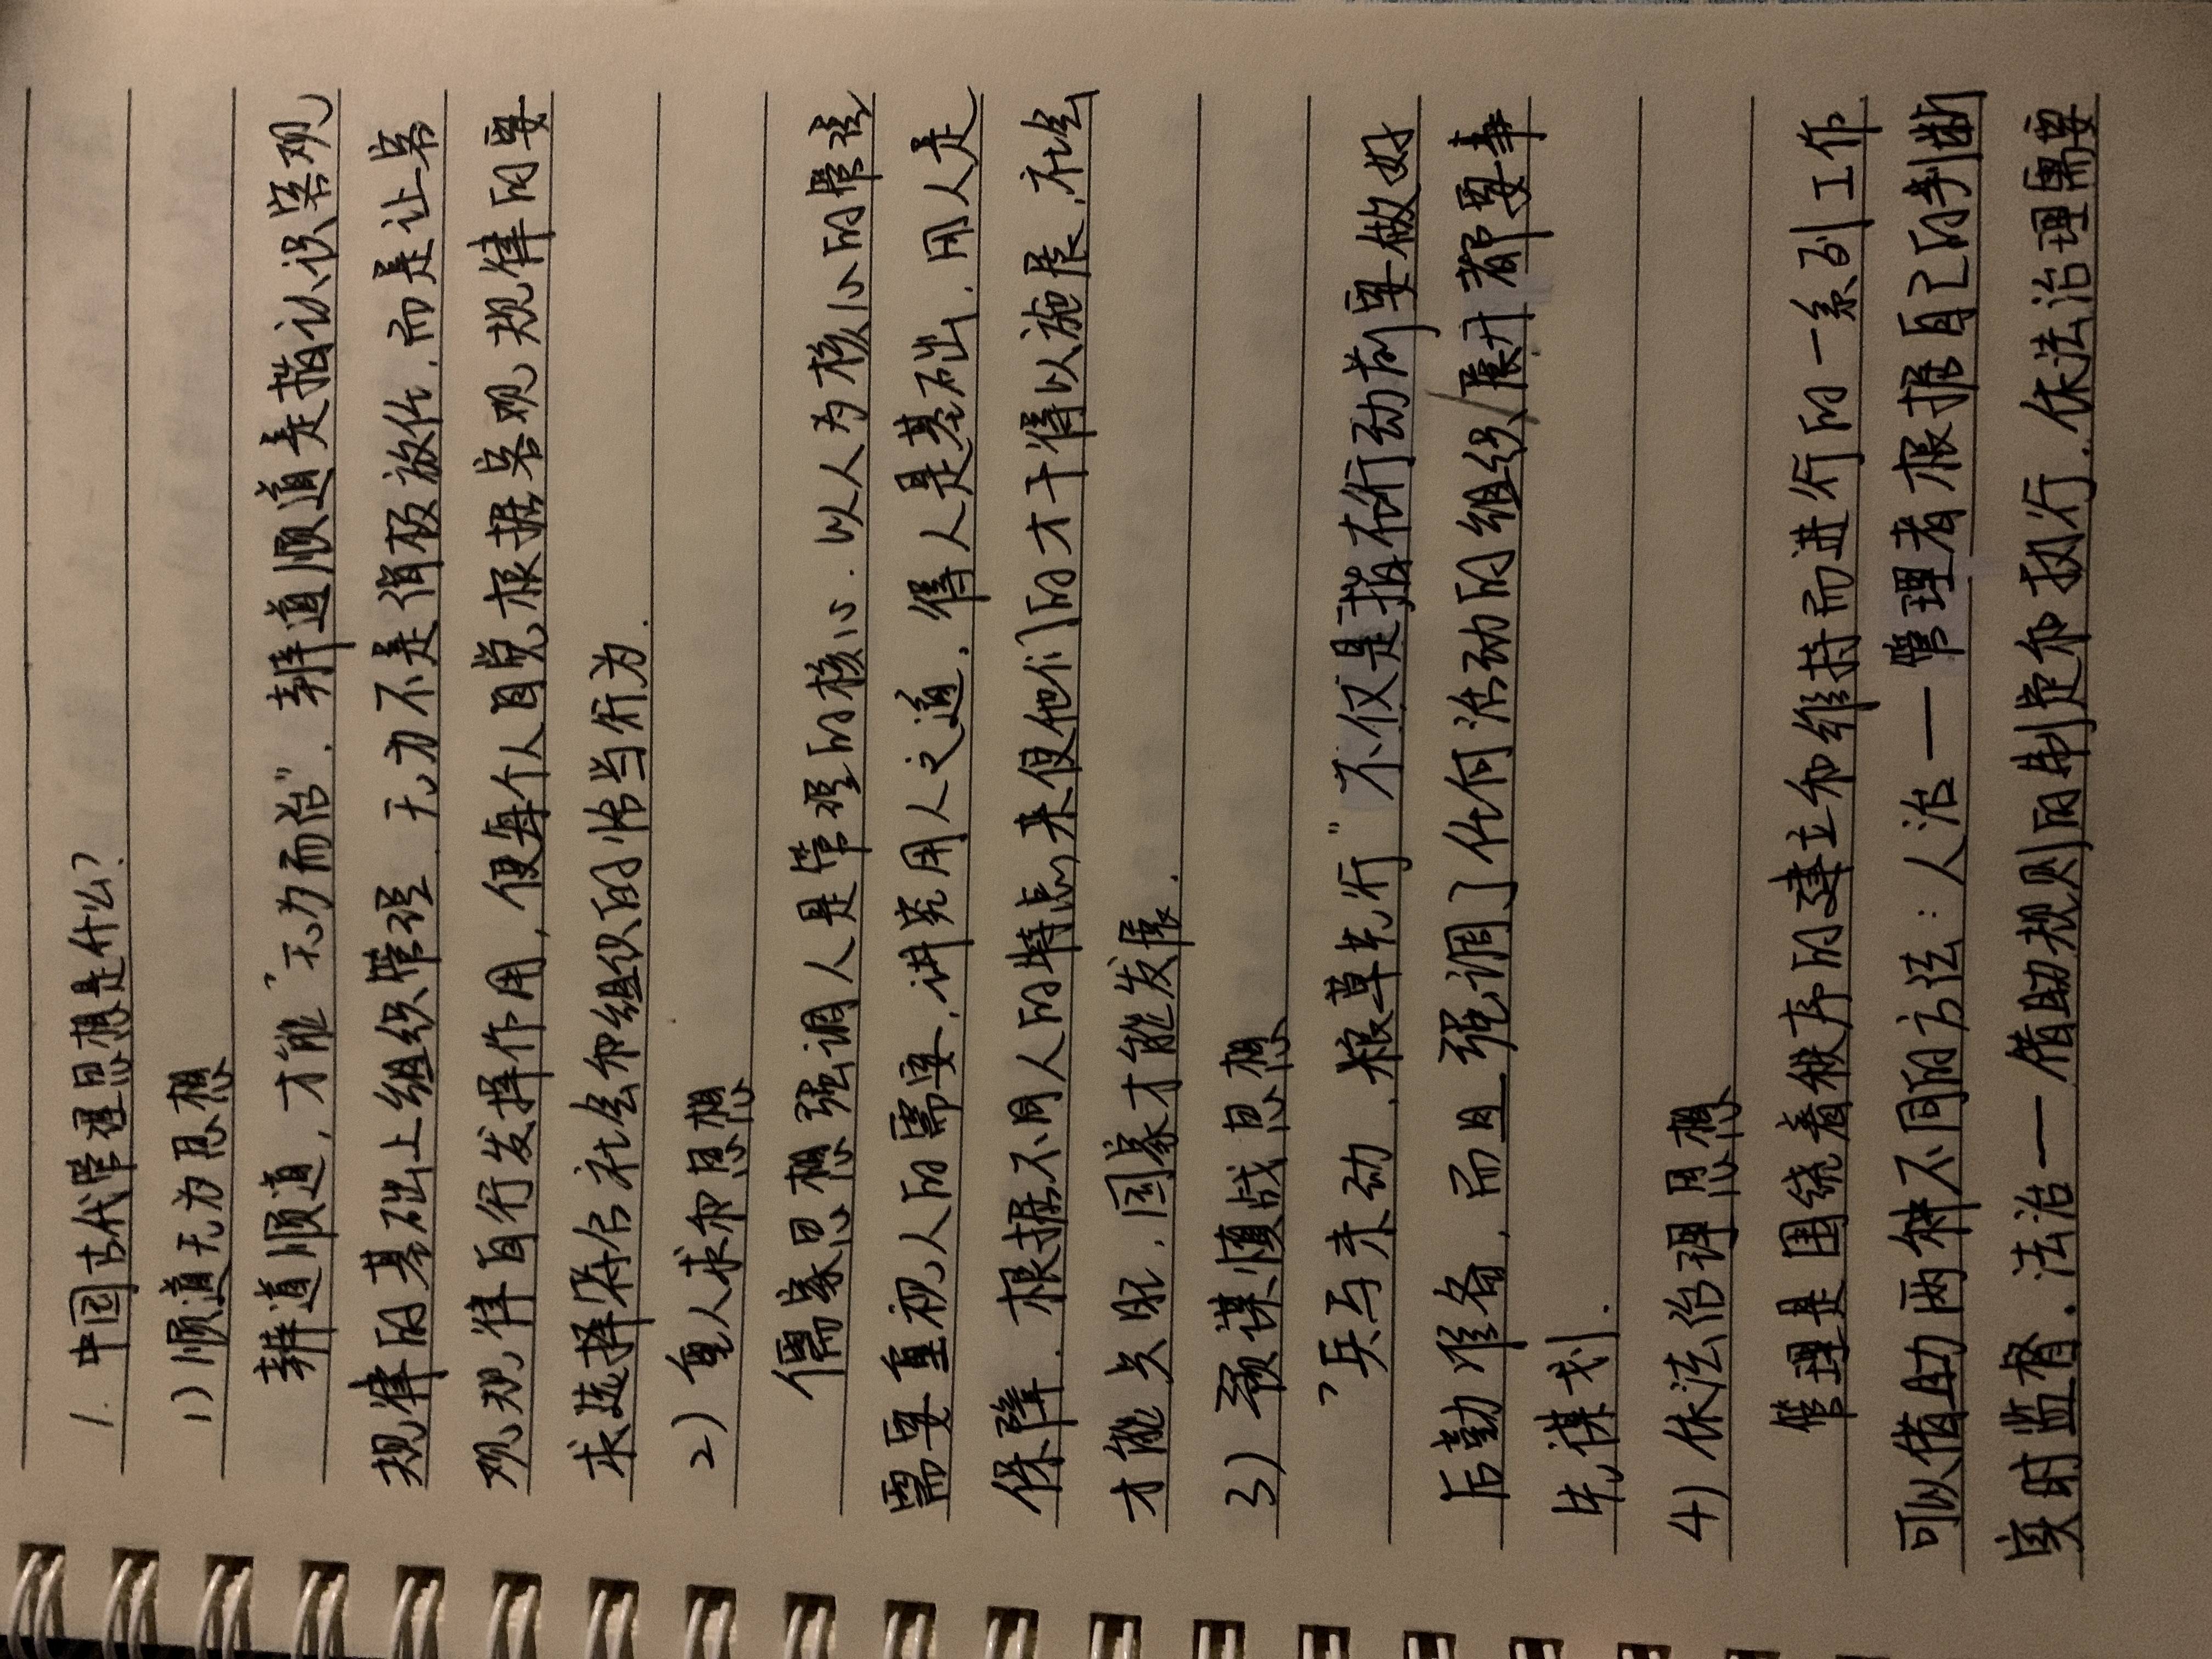 1. 中国古代管理思想是什么?
1) 顺道无为思想
辨道顺道，才能"无为而治"．辨道顺道是指认识客观
规律的基础上组织管理．无为不是消极放任．而是让客
观规律自行发挥作用，使每个人自觉根据客观规律的要
求选择符合社会和组织的恰当行为．
2) 重人求和思想
儒家思想强调人是管理的核心．以人为核心的管理
需要重视人的需要．讲究用人之道．得人是基础．用人是
保障．根据不同人的特点来使他们的才干得以施展．社会
才能发展．国家才能发展．
3) 预谋慎战思想
"兵马未动．粮草先行"不仅是指在行动前要做好
后勤准备．而且强调了任何活动的组织／展开都要事
先谋划．
4) 依法治理思想
管理是围绕着秩序的建立和维持而进行的一系列工作
可以借助两种不同的方法：人治——管理者根据自己的判断
实时监督．法治——借助规则的制定和执行．依法治理需要